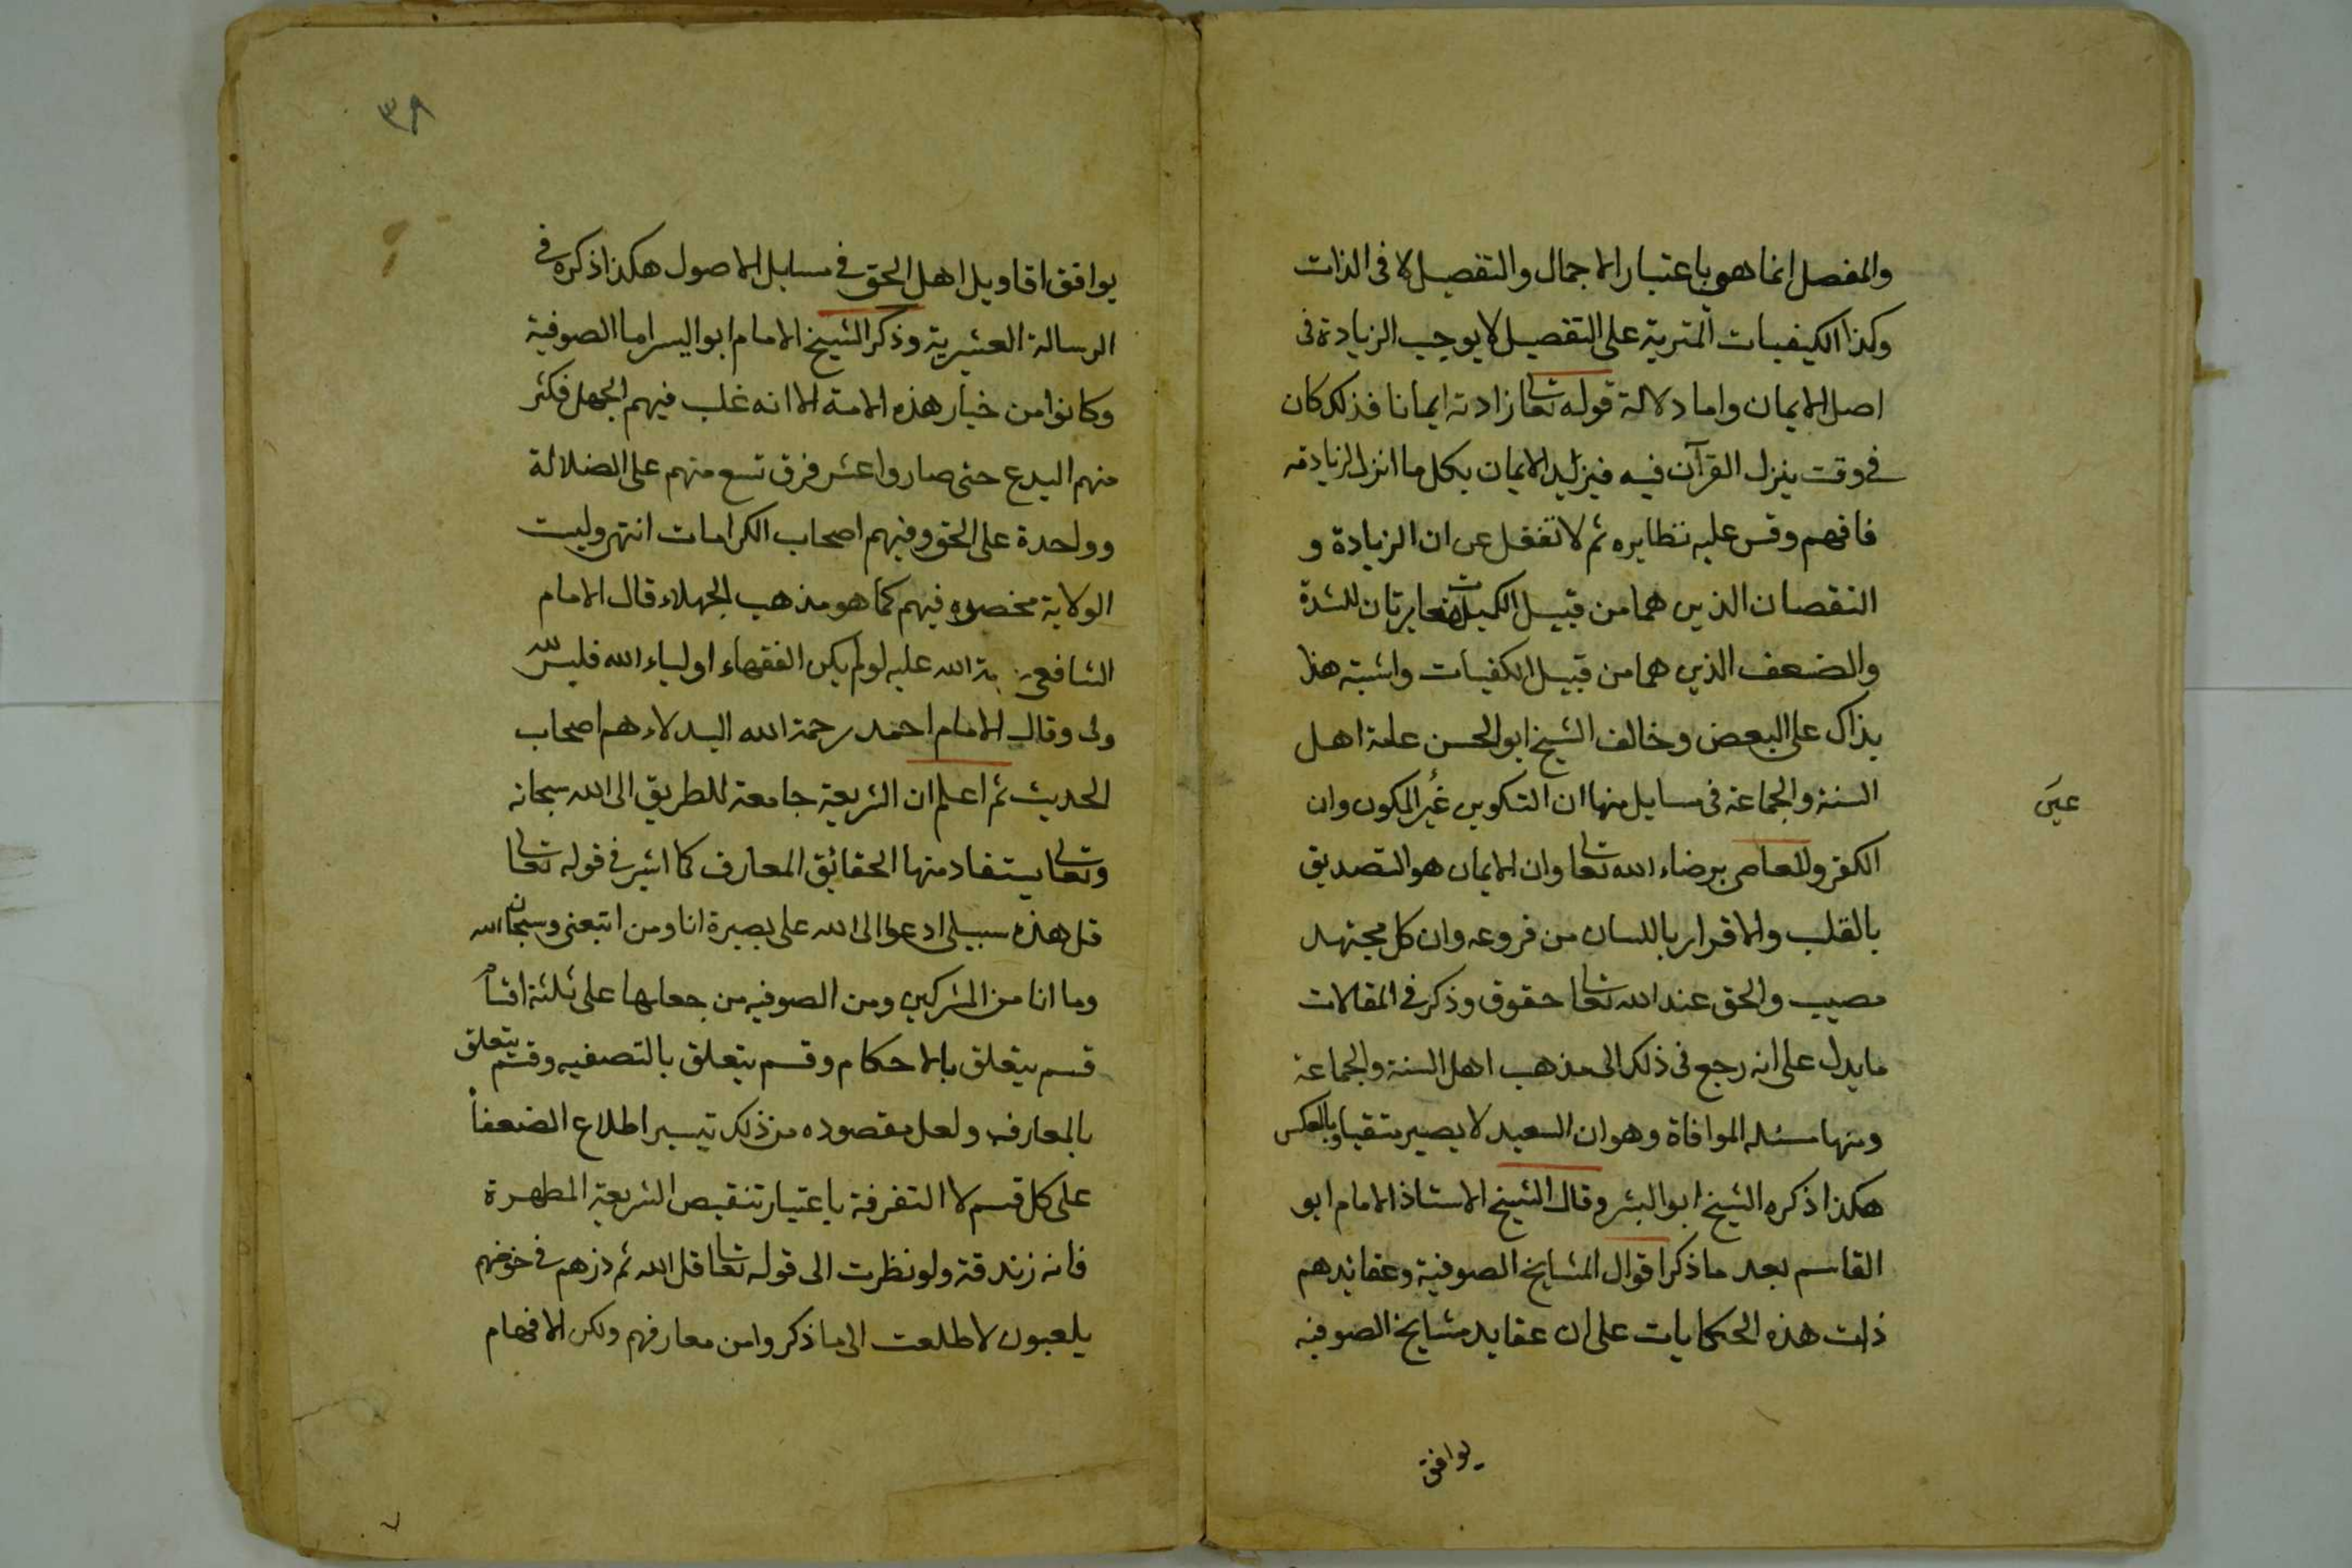 والمفصل انما هو باعتبار الاجمال والتفصيل لا فى الذات
وكذا الكيفيات المترية على التفصيل لا يوجب الزيادة فى
اصل الايمان واما دلالة قوله تعالى زادته ايمانا فذلك كان
فى وقت ينزل القرآن فيه فيزايد الايمان بكل ما انزل لزيادته
فافهم وقس عليه نظايره ثم لا تغفل عن ان الزيادة و
النقصان الذين هما من قبيل الكميات مغايرتان للشدة
والضعف الذين هما من قبيل الكفيات واشبته هذا
بذاك على البعض وخالف الشيخ ابو الحسن عامة اهل
السنة والجماعة فى مسايل منها ان التكوين غير المكون وان
عين
الكفر والمعاصى برضاء الله تعالى وان الايمان هو التصديق
بالقلب والاقرار باللسان من فروعه وان كل مجتهد
مصيب والحق عند الله تعالى حقوق وذكر فى المقالات
ما يدل على انه رجع فى ذلك الى مذهب اهل السنة والجماعة
ومنها مسئله الموافاة وهو ان السعيد لا يصير شقيا وبالعكس
هكذا ذكره الشيخ ابو البشر وقال الشيخ الاستاذ الامام ابو
القاسم بعد ما ذكر اقوال المشايخ الصوفية وعقايدهم
ذلت هذه الحكايات على ان عقايد مشايخ الصوفيه
يوافق
٣٩
يوافق اقاويل اهل الحق فى مسايل الاصول هكذا ذكره فى
الرسالة العشرية وذكر الشيخ الامام ابو اليسر اما الصوفية
وكانوا من خيار هذه الامة الا انه غلب فيهم الجهل فكثر
منهم البدع حتى صاروا عشر فرق تسع منهم على الضلالة
وواحدة على الحق وفيهم اصحاب الكرامات انتهى وليت
الولاية مخصوصه فيهم كما هو مذهب الجهلاء قال الامام
الشافعى رحمة الله عليه لو لم يكن الفقهاء اولياء الله فليس لله
ولى وقال الامام احمد رحمة الله البدلاء هم اصحاب
الحديث ثم اعلم ان الشريعة جامعة للطريق الى الله سبحانه
وتعالى يستفاد منها الحقائق المعارف كما اشير فى قوله تعالى
قل هذه سبيلى ادعوا الى الله على بصيرة انا ومن اتبعنى وسبحان الله
وما انا من المشركين ومن الصوفيه من جعلها على ثلثة اقسام
قسم يتعلق بالاحكام وقسم يتعلق بالتصفيه وقسم يتعلق
بالمعارف ولعل مقصوده من ذلك تيسير اطلاع الضعفاء
على كل قسم لا التفرقة باعتبار تنقيص الشريعة المطهرة
فانه زندقة ولو نظرت الى قوله تعالى قل الله ثم ذرهم فى خوضهم
يلعبون لاطلعت الى ما ذكروا من معارفهم ولكن الافهام